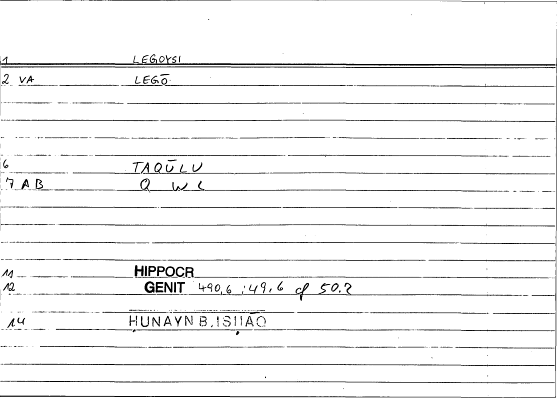 1 LEGOYSI
2 VA LEGŌ
6 TAQŪLU
7 AB Q W L
11 HIPPOCR
12 GENIT 490,6 ; 49,6 cf 50.2
14 ḤUNAYN B. ISḤĀQ